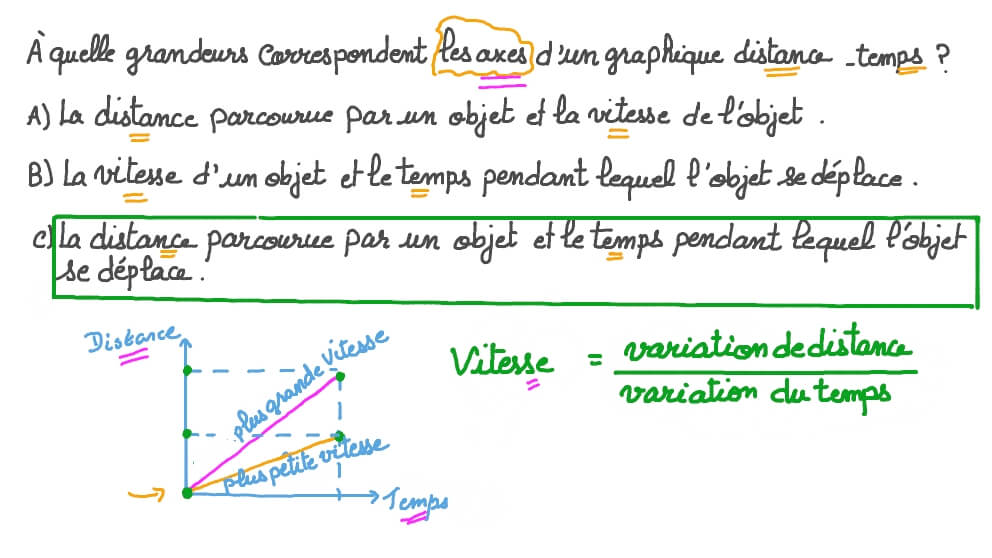 À quelle grandeurs correspondent les axes d'un graphique distance - temps ?
A) La distance parcourue par un objet et la vitesse de l'objet.
B) La vitesse d'un objet et le temps pendant lequel l'objet se déplace.
C) La distance parcourue par un objet et le temps pendant lequel l'objet
se déplace.
Distance
plus grande vitesse
plus petite vitesse
Temps
Vitesse = variation de distance
variation du temps